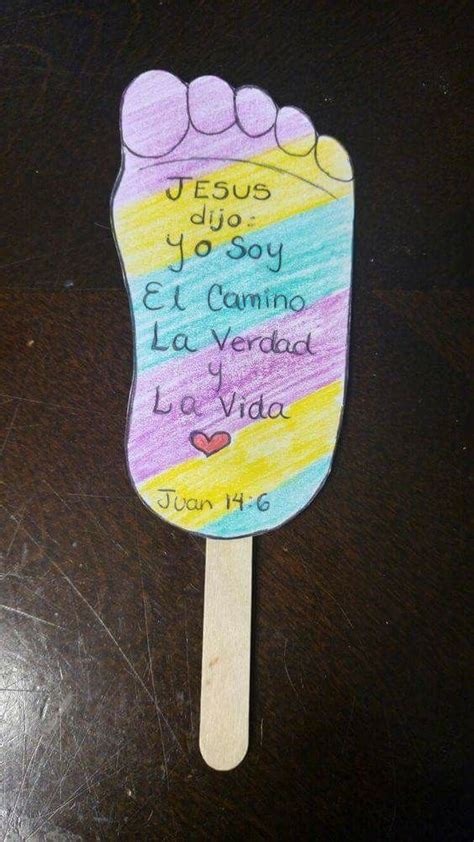 JESUS
dijo:
yo Soy
El Camino
La Verdad
y
La Vida
Juan 14:6